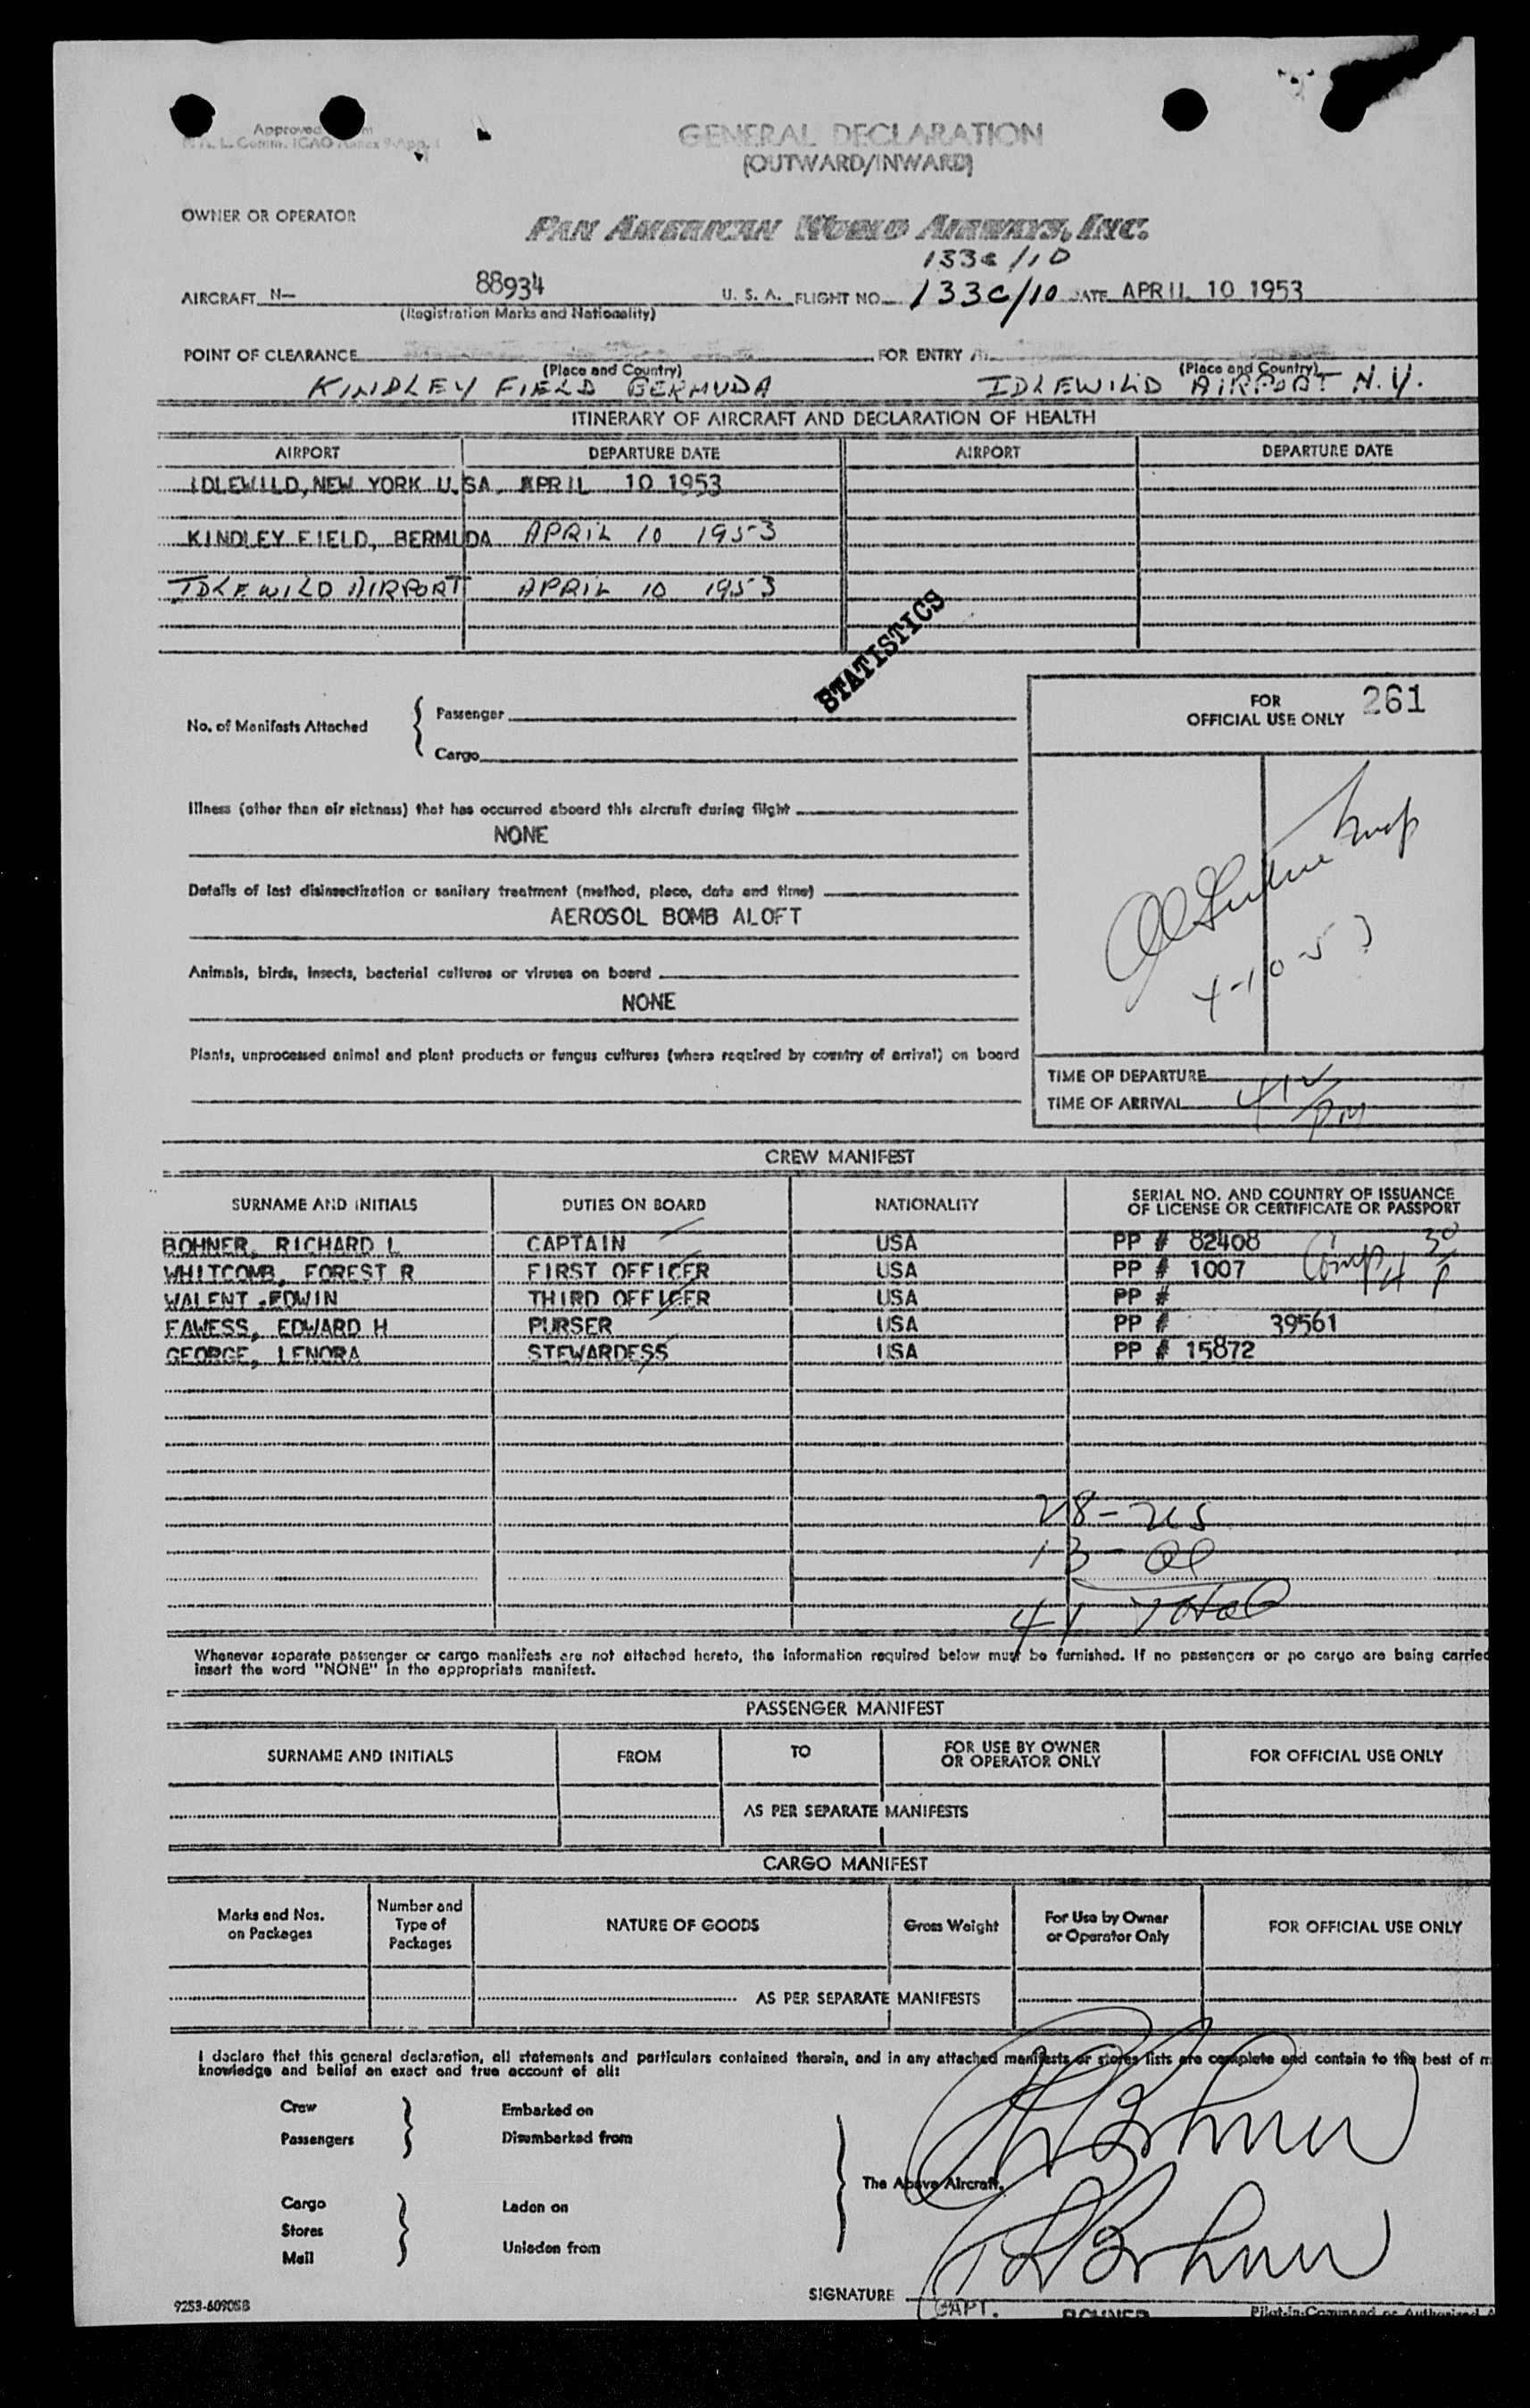 Approved
GENERAL DECLARATION
(OUTWARD/INWARD)
OWNER OR OPERATOR
PAN AMERICAN WORLD AIRWAYS, INC.
133c/10
AIRCRAFT N— 88934 U. S. A. FLIGHT NO. 133C/10 DATE APRIL 10 1953
(Registration Marks and Nationality)
POINT OF CLEARANCE FOR ENTRY
(Place and Country) (Place and Country)
KINDLEY FIELD BERMUDA IDLEWILD AIRPORT N.Y.
ITINERARY OF AIRCRAFT AND DECLARATION OF HEALTH
AIRPORT DEPARTURE DATE AIRPORT DEPARTURE DATE
IDLEWILD, NEW YORK U.SA. APRIL 10 1953
KINDLEY FIELD, BERMUDA APRIL 10 1953
IDLEWILD AIRPORT APRIL 10 1953
STATISTICS
FOR
OFFICIAL USE ONLY 261
No. of Manifests Attached { Passenger
Cargo
Illness (other than air sickness) that has occurred aboard this aircraft during flight
NONE
Details of last disinsectization or sanitary treatment (method, place, date and time)
AEROSOL BOMB ALOFT
4-10-53
Animals, birds, insects, bacterial cultures or viruses on board
NONE
Plants, unprocessed animal and plant products or fungus cultures (where required by country of arrival) on board
TIME OF DEPARTURE
TIME OF ARRIVAL 412 PM
CREW MANIFEST
SURNAME AND INITIALS DUTIES ON BOARD NATIONALITY SERIAL NO. AND COUNTRY OF ISSUANCE
OF LICENSE OR CERTIFICATE OR PASSPORT
BOHNER, RICHARD L CAPTAIN USA PP # 82408
WHITCOMB, FOREST R FIRST OFFICER USA PP # 1007
WALENT ,EDWIN THIRD OFFICER USA PP #
FAWESS, EDWARD H PURSER USA PP # 39561
GEORGE, LENORA STEWARDESS USA PP # 15872
28 - US
13 - al
41 Total
Whenever separate passenger or cargo manifests are not attached hereto, the information required below must be furnished. If no passengers or no cargo are being carried
insert the word "NONE" in the appropriate manifest.
PASSENGER MANIFEST
SURNAME AND INITIALS FROM TO FOR USE BY OWNER FOR OFFICIAL USE ONLY
OR OPERATOR ONLY
AS PER SEPARATE MANIFESTS
CARGO MANIFEST
Marks and Nos. on Packages Number and Type of Packages NATURE OF GOODS Gross Weight For Use by Owner or Operator Only FOR OFFICIAL USE ONLY
AS PER SEPARATE MANIFESTS
I declare that this general declaration, all statements and particulars contained therein, and in any attached manifests or stores lists are complete and contain to the best of m
knowledge and belief an exact and true account of all:
Crew } Embarked on
Passengers Disembarked from
} The Above Aircraft.
Cargo Laden on
Stores }
Mail Unladen from
R L Bohner
R L Bohner
SIGNATURE
CAPT. BOHNER Pilot-in-Command or Authorized A
9253-60905B